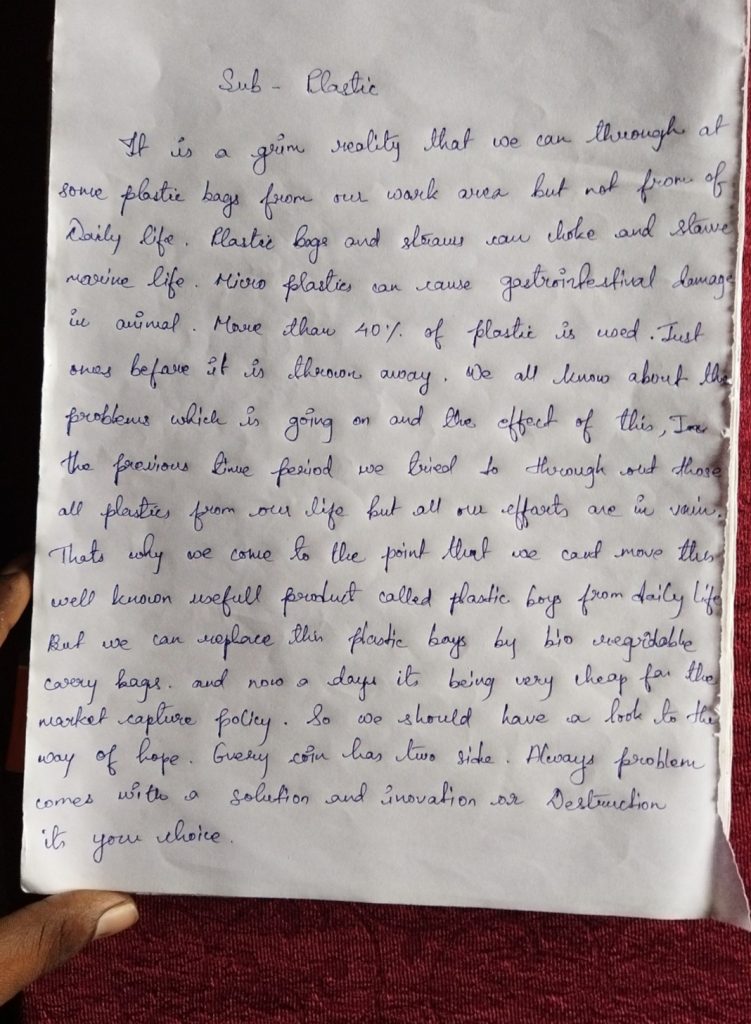 Sub - Plastic
It is a grim reality that we can through at
some plastic bags from our work area but not from of
Daily life. Plastic bags and straws can choke and starve
marine life. Micro plastics can cause gastrointestinal damage
in animal. More than 40% of plastic is used. Just
ones before it is thrown away. We all know about the
problems which is going on and the effect of this, In
the previous time period we tried to through out those
all plastics from our life but all our efforts are in vain.
Thats why we come to the point that we cant move this
well known usefull product called plastic bags from daily life
But we can replace this plastic bags by bio regridable
carry bags. and now a days its being very cheap for the
market capture policy. So we should have a look to the
way of hope. Every coin has two side. Always problem
comes with a solution and inovation or Destruction
its your choice.